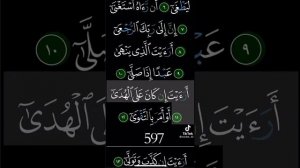 لَيَطْغَىٰٓ ٦ أَن رَّءَاهُ ٱسْتَغْنَىٰٓ
٧ إِنَّ إِلَىٰ رَبِّكَ ٱلرُّجْعَىٰٓ
٨ أَرَءَيْتَ ٱلَّذِى يَنْهَىٰ
٩ عَبْدًا إِذَا صَلَّىٰٓ ١٠
أَرَءَيْتَ إِن كَانَ عَلَى ٱلْهُدَىٰٓ
١١ أَوْ أَمَرَ بِٱلتَّقْوَىٰٓ ١٢
597
أَرَءَيْتَ إِن كَذَّبَ وَتَوَلَّىٰٓ
٩ عَبْدًا إِذَا صَلَّىٰٓ ١٠
TikTok